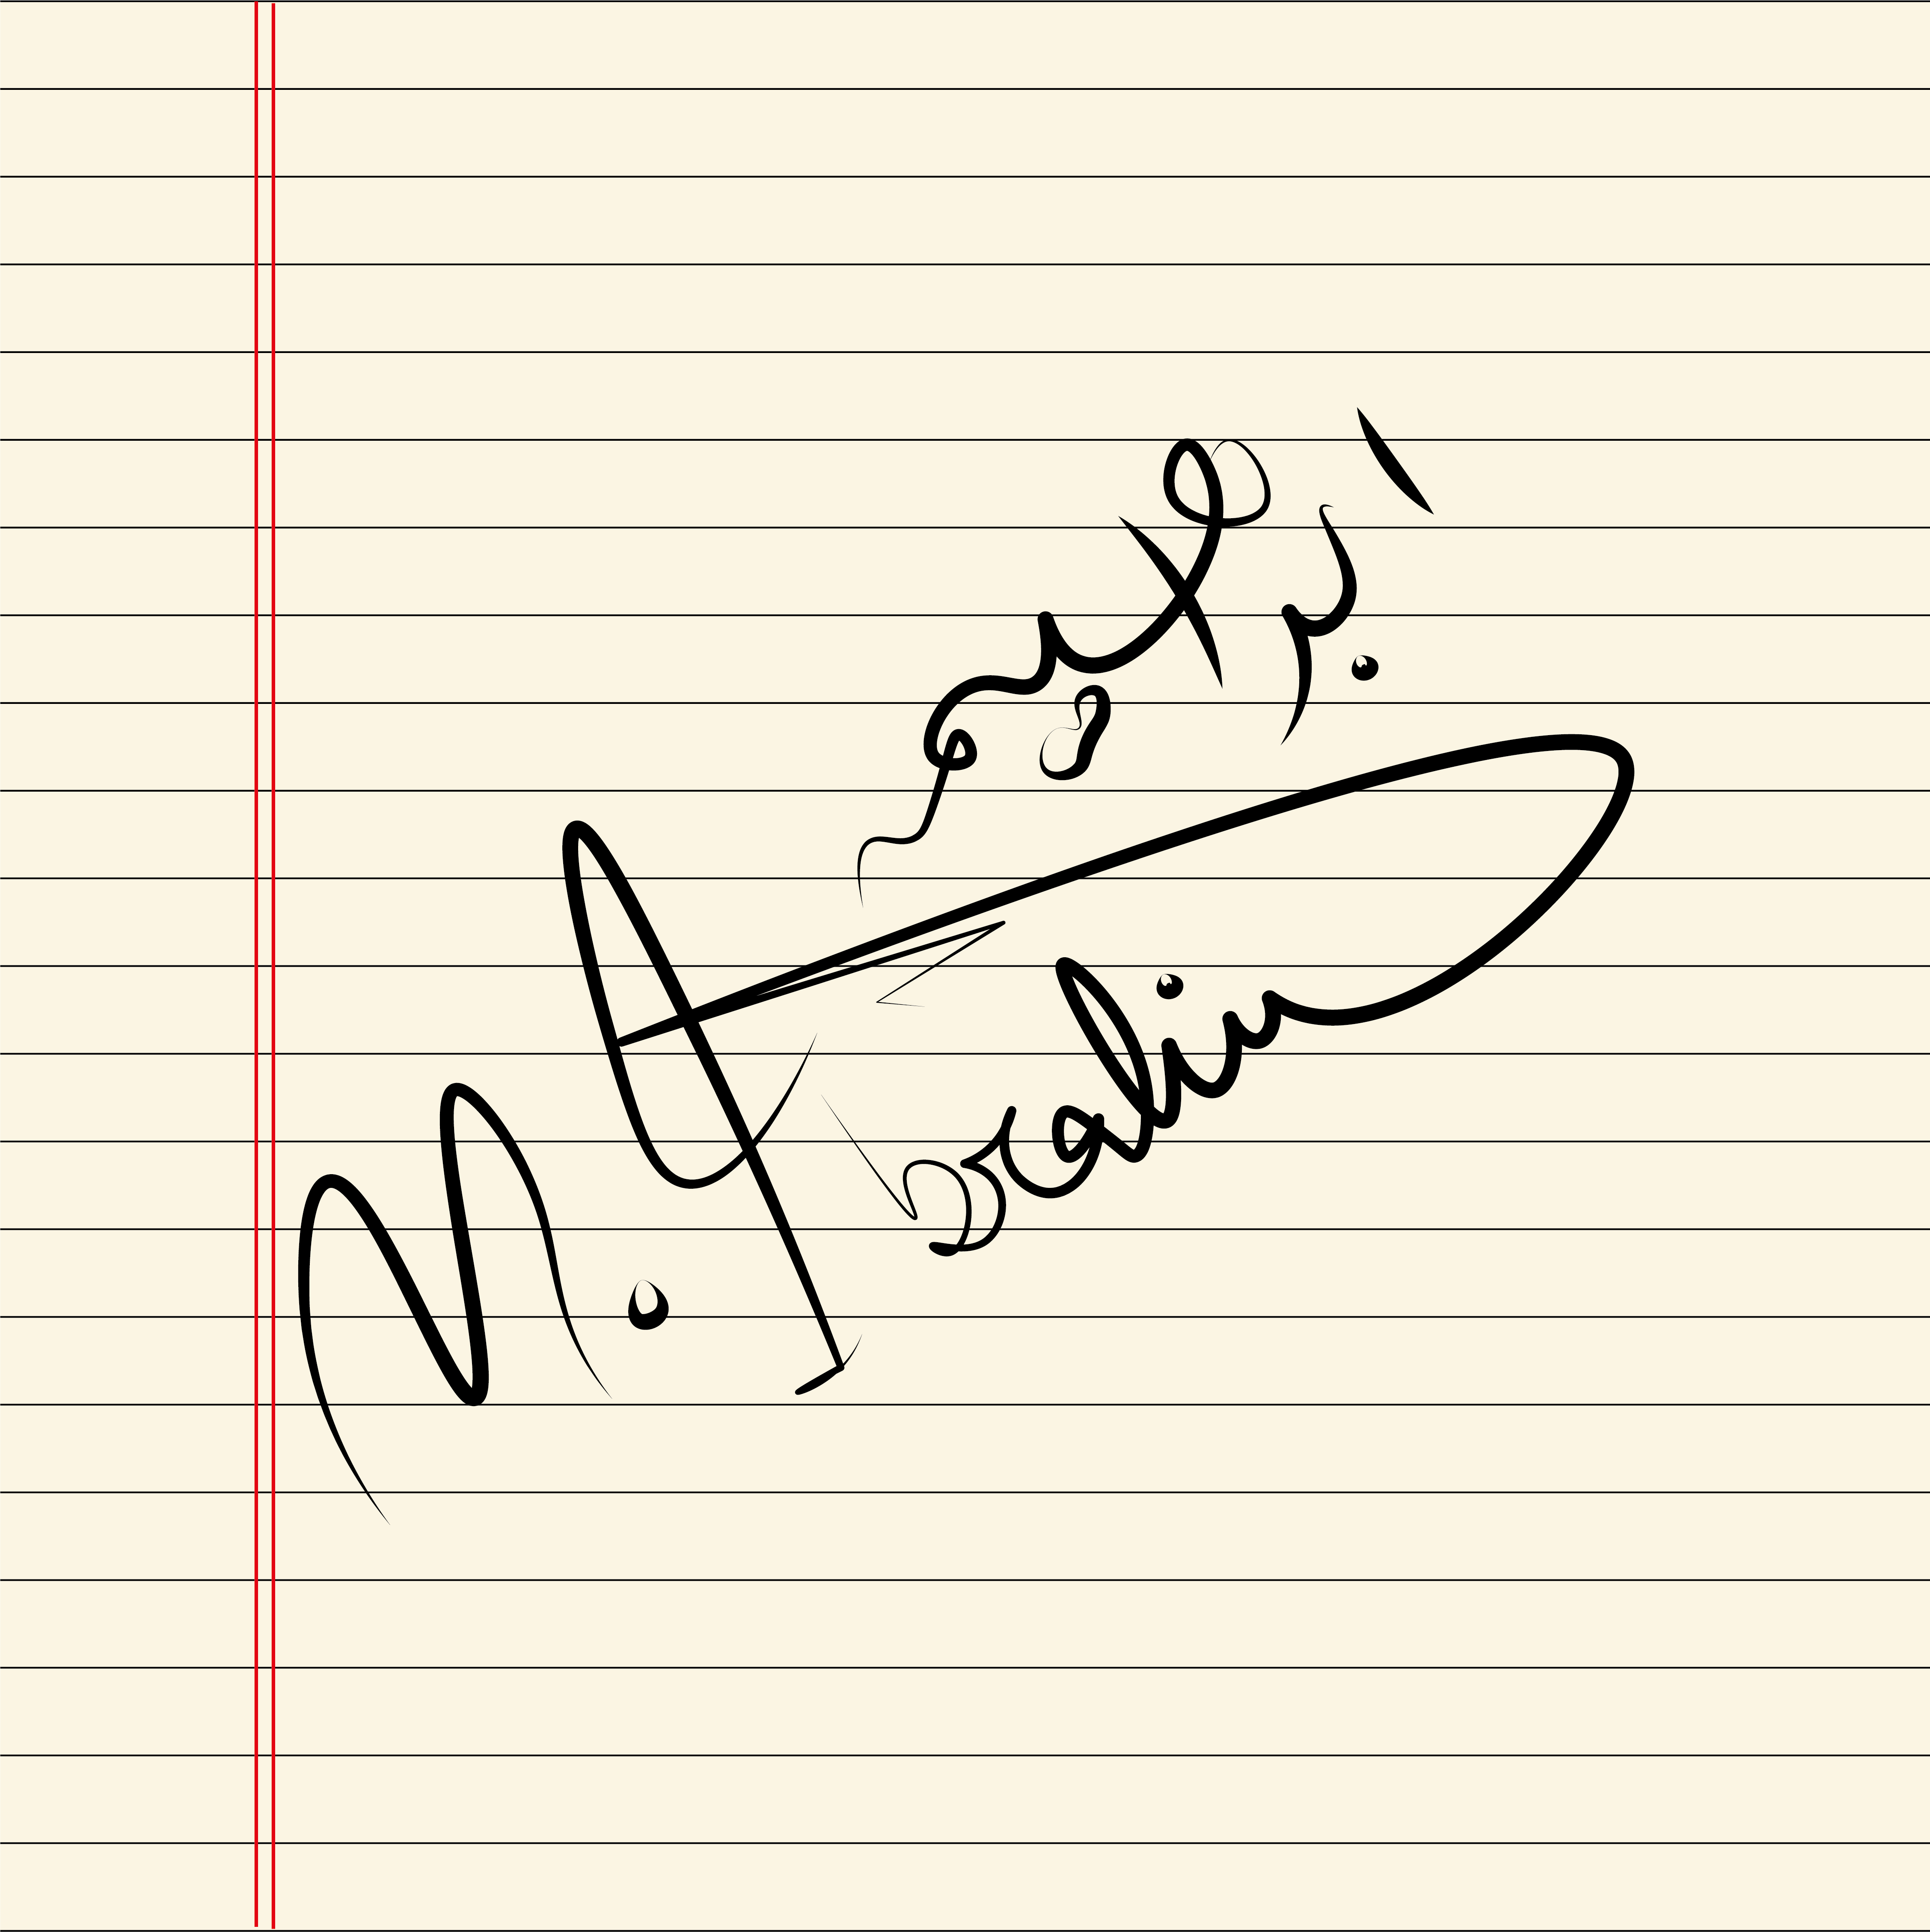 ابراهيم
M. Abrahim